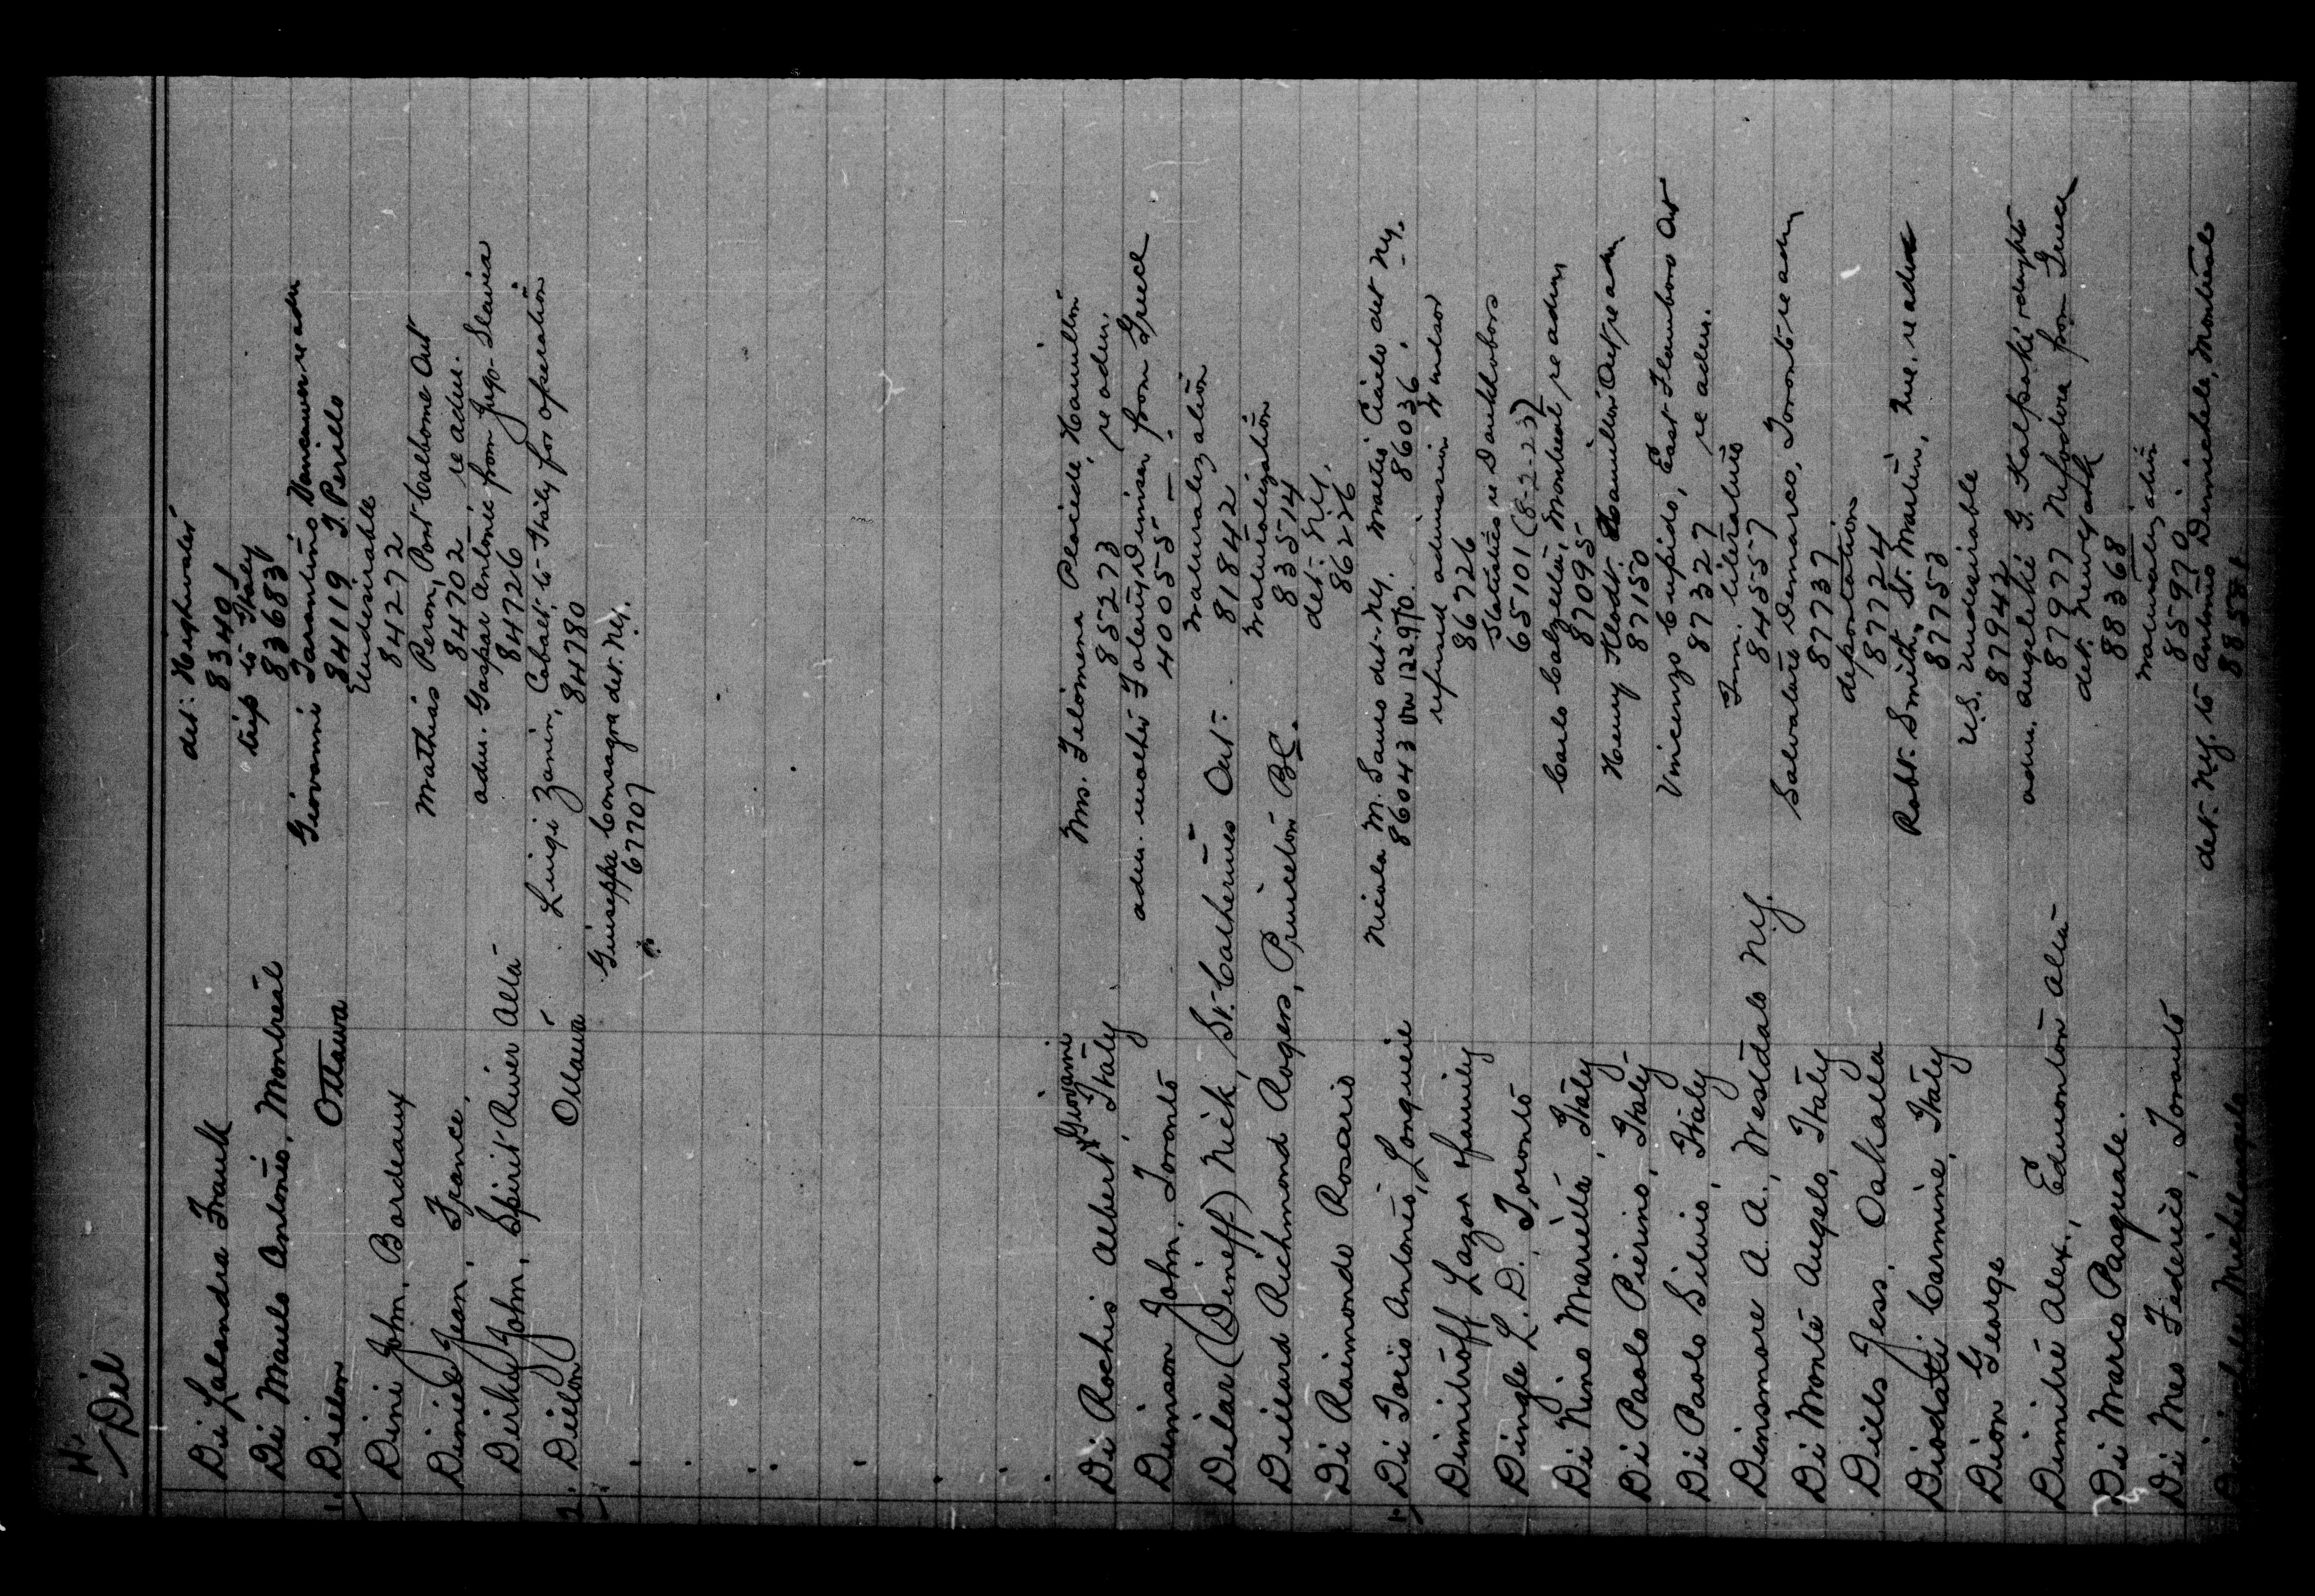 Di
Dil
Di Lalandra Frank det. Highwater
83401
Di Maulo Antonio, Montreal trip to Italy
83683
1. Dillon Ottawa Giovanni Tarantino Vancouver re adm
84119 T. Perillo
Dini John, Bordeaux Undesirable
84272
Diniel Jean, France, Mathias Peron, Port Colborne Ont
84702 re adm.
Dirky John, Spirit River Alta adm. Gaspar Antonic from Jugo-Slavia
84726
2. Dillon Ottawa Luigi Zanin, Cobalt to Italy for operation
84780
Giuseppa Consagra det. N.Y.
67707
Di Rochis Albert Giovanni, Italy Mrs. Filomena Placide, Hamilton
85273 re adm.
Dimison John, Toronto adm. mother Dimison from Greece
40055
Dilas (Dineff) Nick, St. Catherines Ont. Naturalization
81842
Dillard Richmond Rogers, Princeton B.C. Naturalization
83514
Di Raimondo Rosario det. N.Y.
86226
1. Di Iorio Antonio, Longueil Nicola M. Sauro det. N.Y. Mattio Ciarlo det N.Y.
86043 122970 86036
Dimitroff Lazor & family refused admission Windsor
86726
Dingle L. D. Toronto Statistics re Doukhobors
65101 (8-2-23)
Di Nino Mariella, Italy Carlo Calzella, Montreal re adm
87095
Di Paolo Pierino, Italy Henry Klodt Hamilton Ont re adm
87150
Di Paolo Silvio, Italy Vincenzo Cupido, East Flamboro Ont
87327 re adm.
Dinsmore A. A., Westdale N.Y. Imm. literature
84557
Di Monte Angelo, Italy Salvatore Demarco, Toronto re adm
87737
Dills Jess. Oakalla deportation
87724
Diodatti Carmine, Italy Robt. Smith, St. Martin, re adm
87753
Dion George U.S. Undesirable
87942
Dimitri Alex., Edmonton Alta adm. Angeliki G. Kalpaki
87977 from Greece
Di Marco Pasquale. det. New York
88368
Di Meo Federico, Toronto Naturalization
85970
Michelangelo det. N.Y. to Antonio Dimichele, Montreal
88581